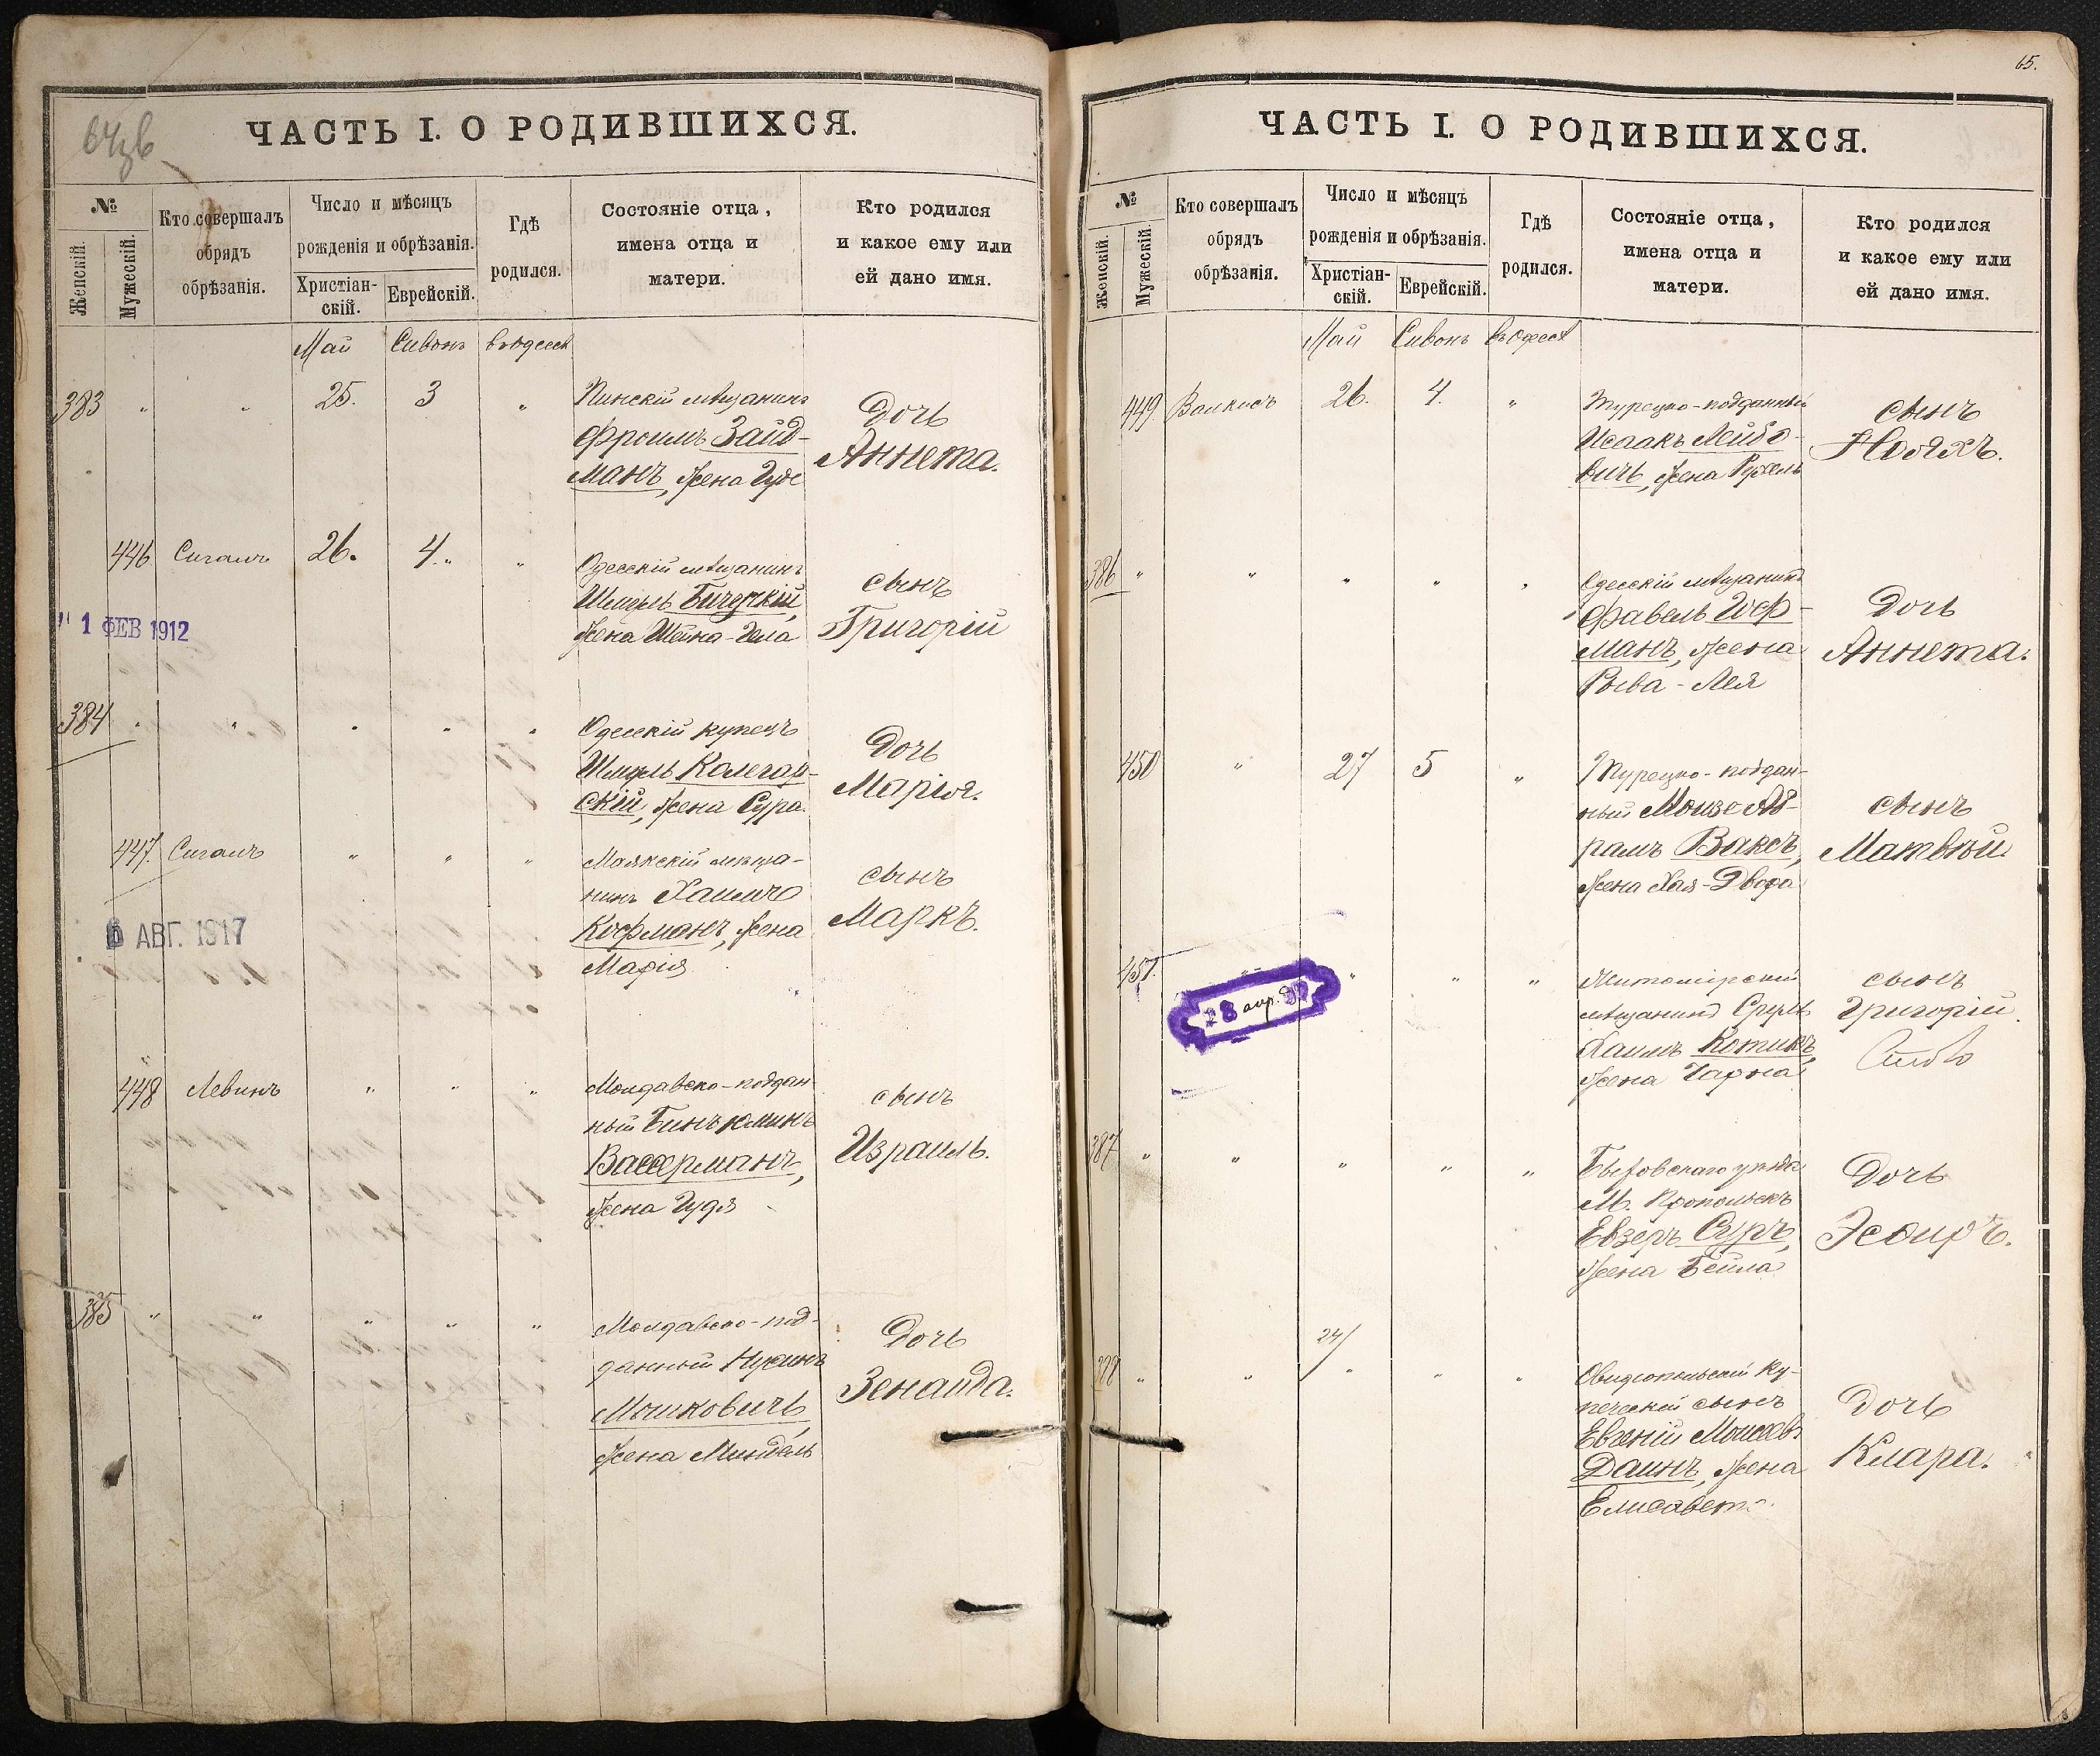 64зв
ЧАСТЬ I. О РОДИВШИХСЯ.
№
Женскій.
Мужескій.
Кто совершалъ
обрядъ
обрѣзанія.
Число и мѣсяцъ
рожденія и обрѣзанія.
Христіан-
скій.
Еврейскій.
Гдѣ
родился.
Состояніе отца,
имена отца и
матери.
Кто родился
и какое ему или
ей дано имя.
Май Сивонъ въ Одессѣ
383 " " 25. 3 "
Пинскій мѣщанинъ
Фроимъ Зайд-
манъ, жена
Дочь
Аннета.
446 Сигалъ 26. 4. "
Одесскій мѣщанинъ
Шмуль
жена Шейна-Гела
сынъ
Григорій
" 1 ФЕВ 1912
384 " " " " "
Одесскій купецъ
Шмуль Калегор-
скій, жена Сура.
Дочь
Марія.
447. Сигалъ " " "
Маякскій мѣща-
нинъ Хаимъ
Кофманъ, жена
Марія
сынъ
Маркъ.
АВГ. 1917
448 Левинъ " " "
Молдавско-поддан-
ный Биньюминъ
Вассерманъ,
жена Гудя
сынъ
Израиль.
385 " " " " "
Молдавско-под-
данный Нухимъ
Мошковичъ,
жена Миндель
Дочь
Зенаида.
65.
ЧАСТЬ I. О РОДИВШИХСЯ.
№
Женскій.
Мужескій.
Кто совершалъ
обрядъ
обрѣзанія.
Число и мѣсяцъ
рожденія и обрѣзанія.
Христіан-
скій.
Еврейскій.
Гдѣ
родился.
Состояніе отца,
имена отца и
матери.
Кто родился
и какое ему или
ей дано имя.
Май Сивонъ въ Одессѣ
449. 26. 4. "
Турецко-подданный
Исаакъ Лейбо-
вичъ, жена Рухель
сынъ
Нояхъ.
386 " " " " "
Одесскій мѣщанинъ
Фавель Гоф-
манъ, жена
Рыва-Лея
Дочь
Аннета.
450 " 27 5 "
Турецко-поддан-
ный Моизе Аб-
рамъ Ваксъ,
жена Хая-Двора
сынъ
Матвѣй.
451. " " " "
Житомірскій
мѣщанинъ Сруль
Хаимъ Котикъ,
жена Чарна
сынъ
Григорій.
28 апр.
387 " " " " "
уѣзда
М. Пропольскъ
Евзеръ Суръ,
жена Бейла
Дочь
Эсѳирь.
24/
" " " " "
Овидіопольскій ку-
печескій сынъ
Евгеній Моисеев.
Даинъ, жена
Елисавета.
Дочь
Клара.